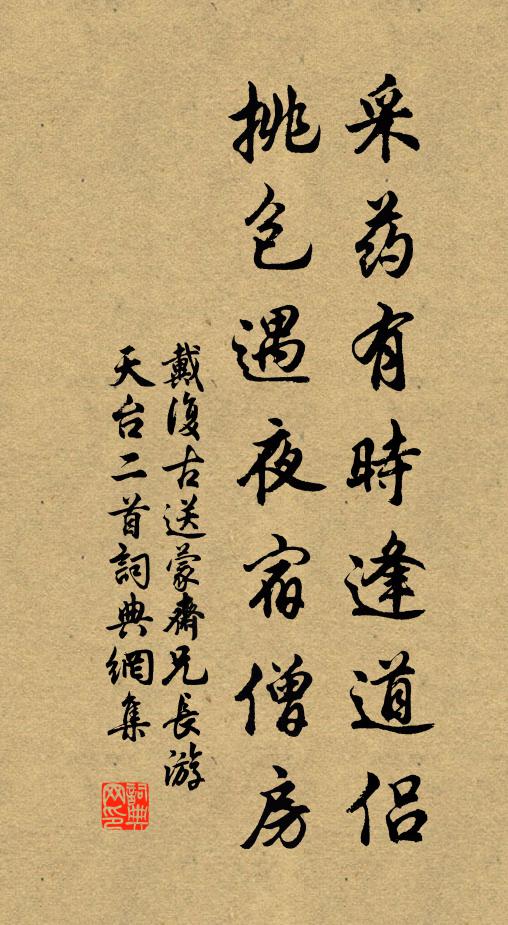 采药有時逢道侶
挑包遇夜宿僧房
戴復古送蒙齋兄長游
天台二首詞典網集
詞典
网印